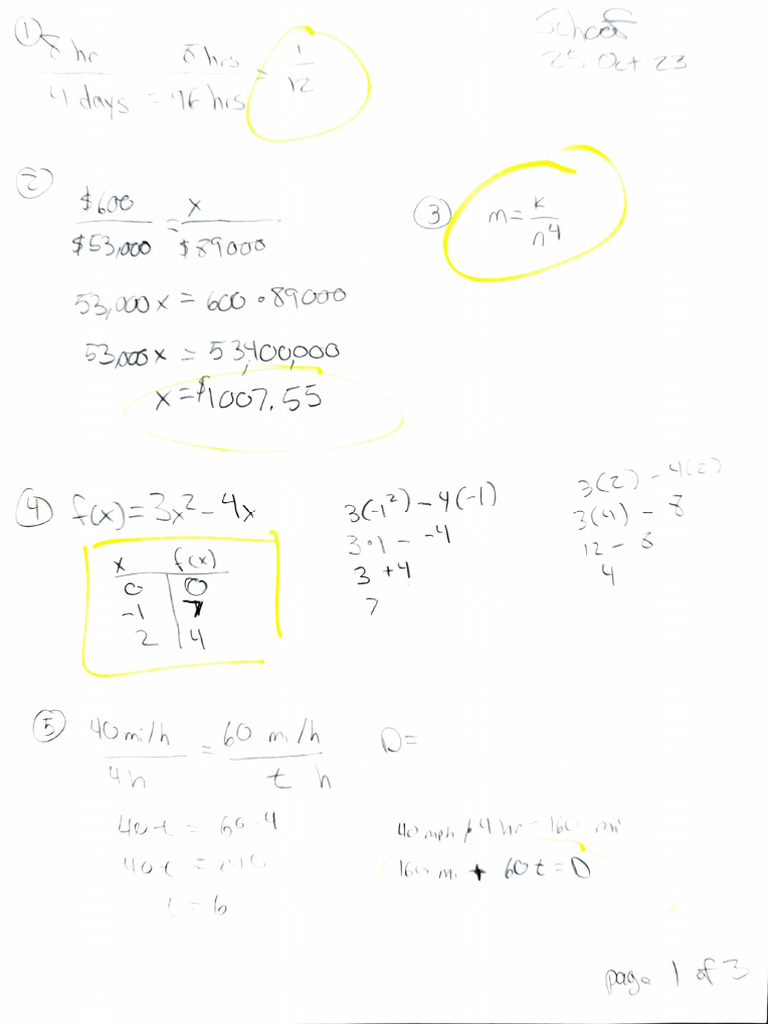 School
25 Oct 23
① 8 hr / 4 days = 8 hrs / 96 hrs = 1/12
② $600 / $53,000 = x / $89000
53,000x = 600 • 89000
53,000x = 53,400,000
x = $1007.55
③ m = k/n⁴
④ f(x) = 3x² - 4x
x f(x)
0 0
-1 7
2 4
3(-1²) - 4(-1)
3•1 - -4
3 + 4
7
3(2) - 4(2)
3(4) - 8
12 - 8
4
⑤ 40 mi/h / 4h = 60 mi/h / t h
40t = 60•4
40t =
t = 6
D =
40 mph 4 hr = 160 mi
160 mi + 60t = D
page 1 of 3